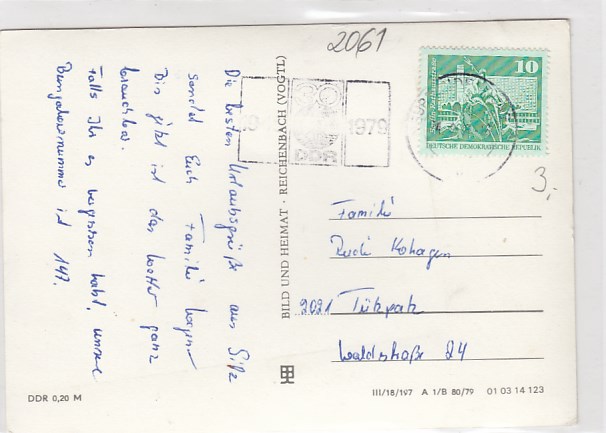 2061
Die besten Urlaubsgrüße aus Silz
sendet Euch Familie
Bis jetzt ist das Wetter ganz
brauchbar.
Falls Ihr es vergessen habt, unsere
Bungalownummer ist 147.
BILD UND HEIMAT · REICHENBACH (VOGTL)
19
1979
DDR
10
DEUTSCHE DEMOKRATISCHE REPUBLIK
3,-
Familie
Rudi
2021
Waldstraße 24
DDR 0,20 M
III/18/197 A 1/B 80/79 01 03 14 123